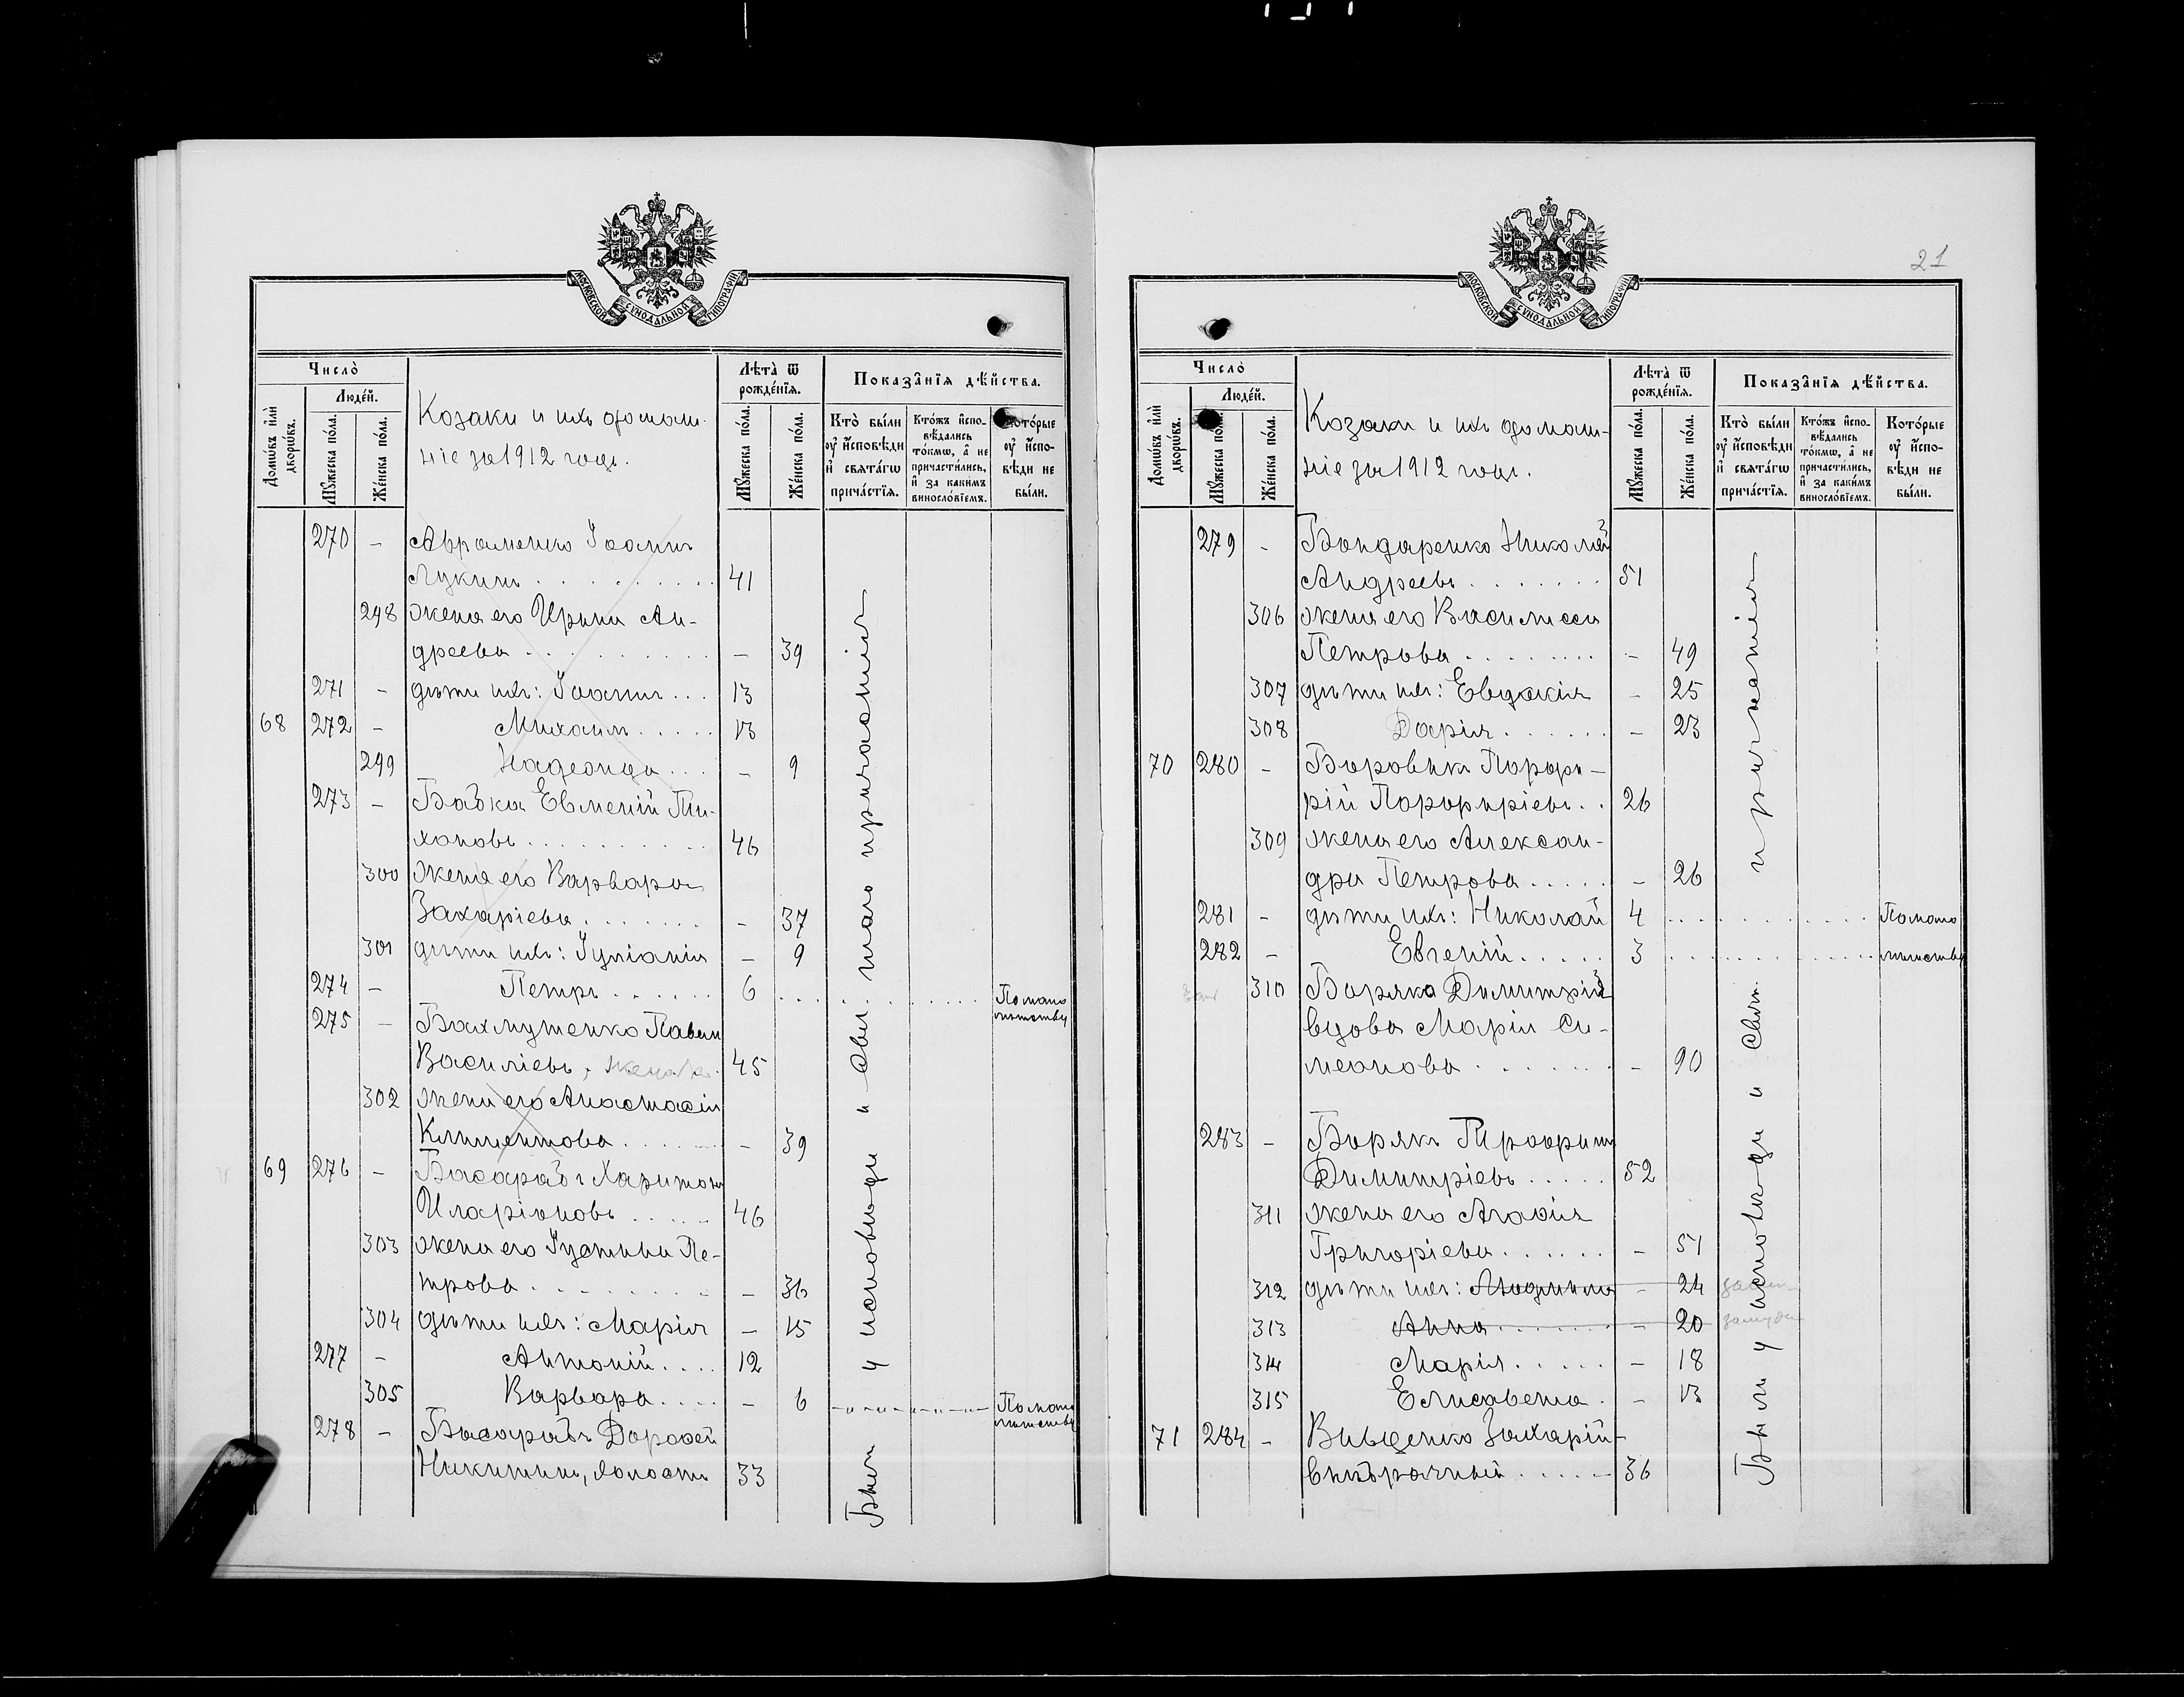 МОСКОВСКОЙ СУНОДАЛЬНОЙ ТИПОГРАФІИ
Число̀
Людей.
Домѡвъ и҆лѝ дворѡвъ.
Мꙋжеска по́ла.
Же́нска по́ла.
Козаки и ихъ домаш-
ніе за 1912 годъ.
Лѣта̀ ѿ рожде́нїѧ.
Мꙋжеска по́ла.
Же́нска по́ла.
Показа̑нїѧ дѣ́йства.
Кто̀ были оу҆ и҆сповѣди и҆ свята́гѡ прича́стїѧ.
Кто́жъ и҆сповѣдались то́кмѡ, а҆ не причасти́лись, и҆ за каки́мъ винослові́емъ.
Кото́рые оу҆ и҆сповѣди не бы́ли.
270 - Авраменко Іоаннъ
Лукинъ . . . . . . . . . 41
298 жена его Ирина Ан-
дреева . . . . . . . . . - 39
271 - дѣти ихъ: Іоаннъ . . . 13
68 272 - Михаилъ . . . . . 13
299 Надежда . . . - 9
273 - Бабка Евменій Ти-
хоновъ . . . . . . . . . 46
300 жена его Варвара
Захаріева . . . . . . . - 37
301 дѣти ихъ: Іуліанія - 9
274 - Петръ . . . . . . 6 . . . . . . . . . . . По мало
лѣтству
275 - Бахмутенко Павелъ
Василіевъ, 45
302 жена его Анастасія
Климентова . . . . . . - 39
69 276 - Басарабъ Харитонъ
Иларіоновъ . . . . . 46
303 жена его Іустина Пе-
трова . . . . . . . . . - 36
304 дѣти ихъ: Марія - 15
277 - Антоній . . . . 12
305 Варвара . . . . - 6 -"-"-"-"-"- По мало
лѣтству
278 - Басарабъ Дороѳей
Никитинъ, холостъ 33
Были у исповѣди и Свят. таго причастія
21
МОСКОВСКОЙ СУНОДАЛЬНОЙ ТИПОГРАФІИ
Число̀
Людей.
Домѡвъ и҆лѝ дворѡвъ.
Мꙋжеска по́ла.
Же́нска по́ла.
Козаки и ихъ домаш-
ніе за 1912 годъ.
Лѣта̀ ѿ рожде́нїѧ.
Мꙋжеска по́ла.
Же́нска по́ла.
Показа̑нїѧ дѣ́йства.
Кто̀ были оу҆ и҆сповѣди и҆ свята́гѡ прича́стїѧ.
Кто́жъ и҆сповѣдались то́кмѡ, а҆ не причасти́лись, и҆ за каки́мъ винослові́емъ.
Кото́рые оу҆ и҆сповѣди не бы́ли.
279 - Бондаренко Николай
Андреевъ . . . . . . . 51
306 жена его Василисса
Петрова . . . . . . . . - 49
307 дѣти ихъ: Евдокія - 25
308 Дарія . . . . . . - 23
70 280 - Боровикъ Порфи-
рій Порфиріевъ . . 26
309 жена его Алексан-
дра Петрова . . . . . - 26
281 - дѣти ихъ: Николай 4 . . . . . . . . . . . По мало
282 - Евгеній . . . . . 3 . . . . . . . . . . . лѣтству
310 Боряка Димитрія
вдова Марія Си-
меонова . . . . . . . - 90
283 - Борякъ Трофимъ
Димитріевъ . . . . . 52
311 жена его Агафія
Григоріева . . . . . . - 51
312 дѣти ихъ: Людмила - 24
313 Анна . . . . . . . - 20
314 Марія . . . . . - 18
315 Елисавета . - 13
71 284 - Вивденко Захарій-
внѣбрачный . . . . . 36
Были у исповѣди и Свят. причастія